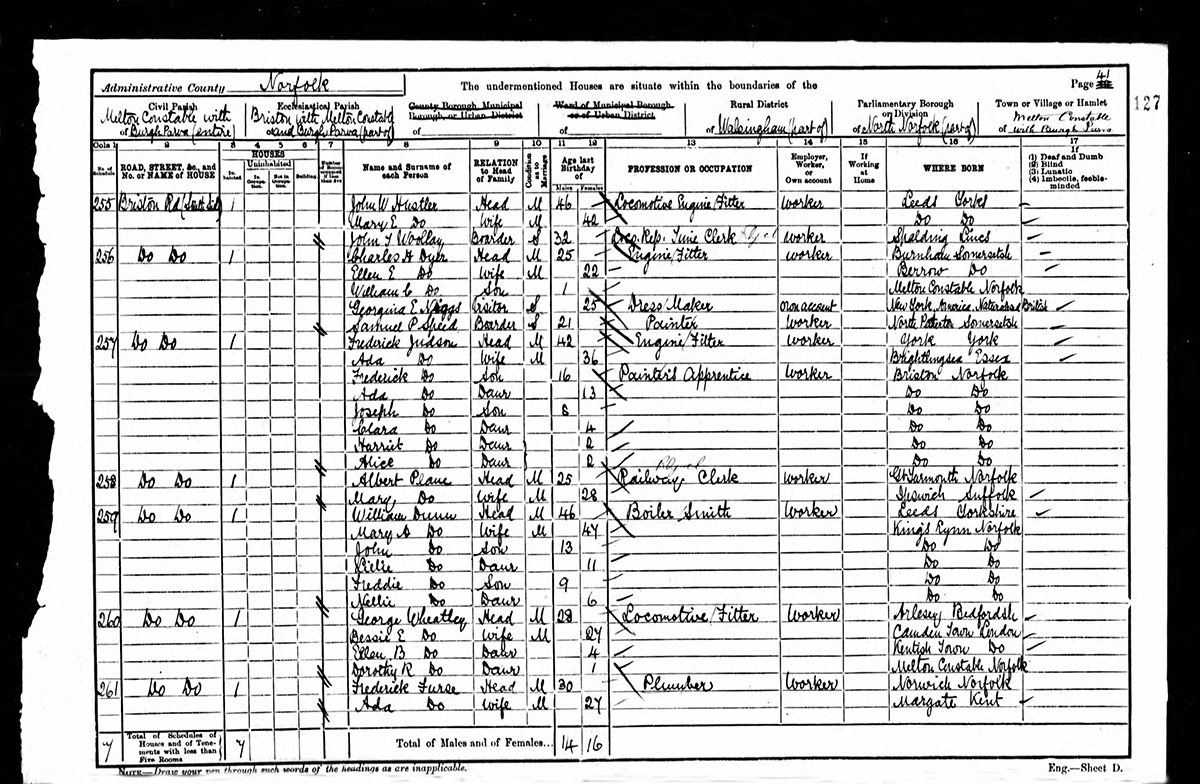 Administrative County Norfolk The undermentioned Houses are situate within the boundaries of the Page 41
127
Civil Parish Ecclesiastical Parish County Borough, Municipal Borough, or Urban District Ward of Municipal Borough or of Urban District Rural District Parliamentary Borough or Division Town or Village or Hamlet
of Melton Constable with Burgh Parva (entire) of Briston with Melton Constable and Burgh Parva (part of) of of of Walsingham (part of) of North Norfolk (part of) of Melton Constable with Burgh Parva
Cols 1 2 3 4 5 6 7 8 9 10 11 12 13 14 15 16 17
No. of Schedule ROAD, STREET, &c., and No. or NAME of HOUSE HOUSES Inhabited Uninhabited In Occupation. Not in Occupation. Building. Number of Rooms occupied if less than five Name and Surname of each Person RELATION to Head of Family Condition as to Marriage Age last Birthday of Males Females PROFESSION OR OCCUPATION Employer, Worker, or Own account If Working at Home WHERE BORN If (1) Deaf and Dumb (2) Blind (3) Lunatic (4) Imbecile, feeble-minded
255 Briston Rd 1 John W Hustler Head M 46 Locomotive Engine Fitter Worker Leeds Yorks
Mary E Do Wife M 42 Do Do
John T Woolley Boarder S 32 Loco. Rep. Time Clerk Worker Spalding Lincs
256 Do Do 1 Charles H Dyer Head M 25 Engine Fitter Worker Burnham Somersetsh
Ellen E Do Wife M 22 Berrow Do
William C Do Son 1 Melton Constable Norfolk
Georgina E Visitor S 25 Dress Maker Own account New York, America, Naturalised British
Samuel P Speed Boarder S 21 Painter Worker North Petherton Somersetsh
257 Do Do 1 Frederick Judson Head M 42 Engine Fitter Worker York York
Ada Do Wife M 36 Brightlingsea Essex
Frederick Do Son 16 Painter's Apprentice Worker Briston Norfolk
Ada Do Daur 13 Do Do
Joseph Do Son 8 Do Do
Clara Do Daur 4 Do Do
Harriet Do Daur 2 Do Do
Alice Do Daur 2 Do Do
258 Do Do 1 Albert Plane Head M 25 Railway Clerk Worker Gt Yarmouth Norfolk
Mary Do Wife M 28 Ipswich Suffolk
259 Do Do 1 William Dunn Head M 46 Boiler Smith Worker Leeds Yorkshire
Mary A Do Wife M 47 Kings Lynn Norfolk
John Do Son 13 Do Do
Lillie Do Daur 11 Do Do
Freddie Do Son 9 Do Do
Nellie Do Daur 6 Do Do
260 Do Do 1 George Wheatley Head M 28 Locomotive Fitter Worker Arlesey Bedfordsh
Bessie E Do Wife M 27 Camden Town London
Ellen B Do Daur 4 Kentish Town Do
Dorothy R Do Daur 1 Melton Constable Norfolk
261 Do Do 1 Frederick Furse Head M 30 Plumber Worker Norwich Norfolk
Ada Do Wife M 27 Margate Kent
7 Total of Schedules of Houses and of Tenements with less than Five Rooms 7 Total of Males and of Females... 14 16
NOTE—Draw your pen through such words of the headings as are inapplicable. Eng.—Sheet D.